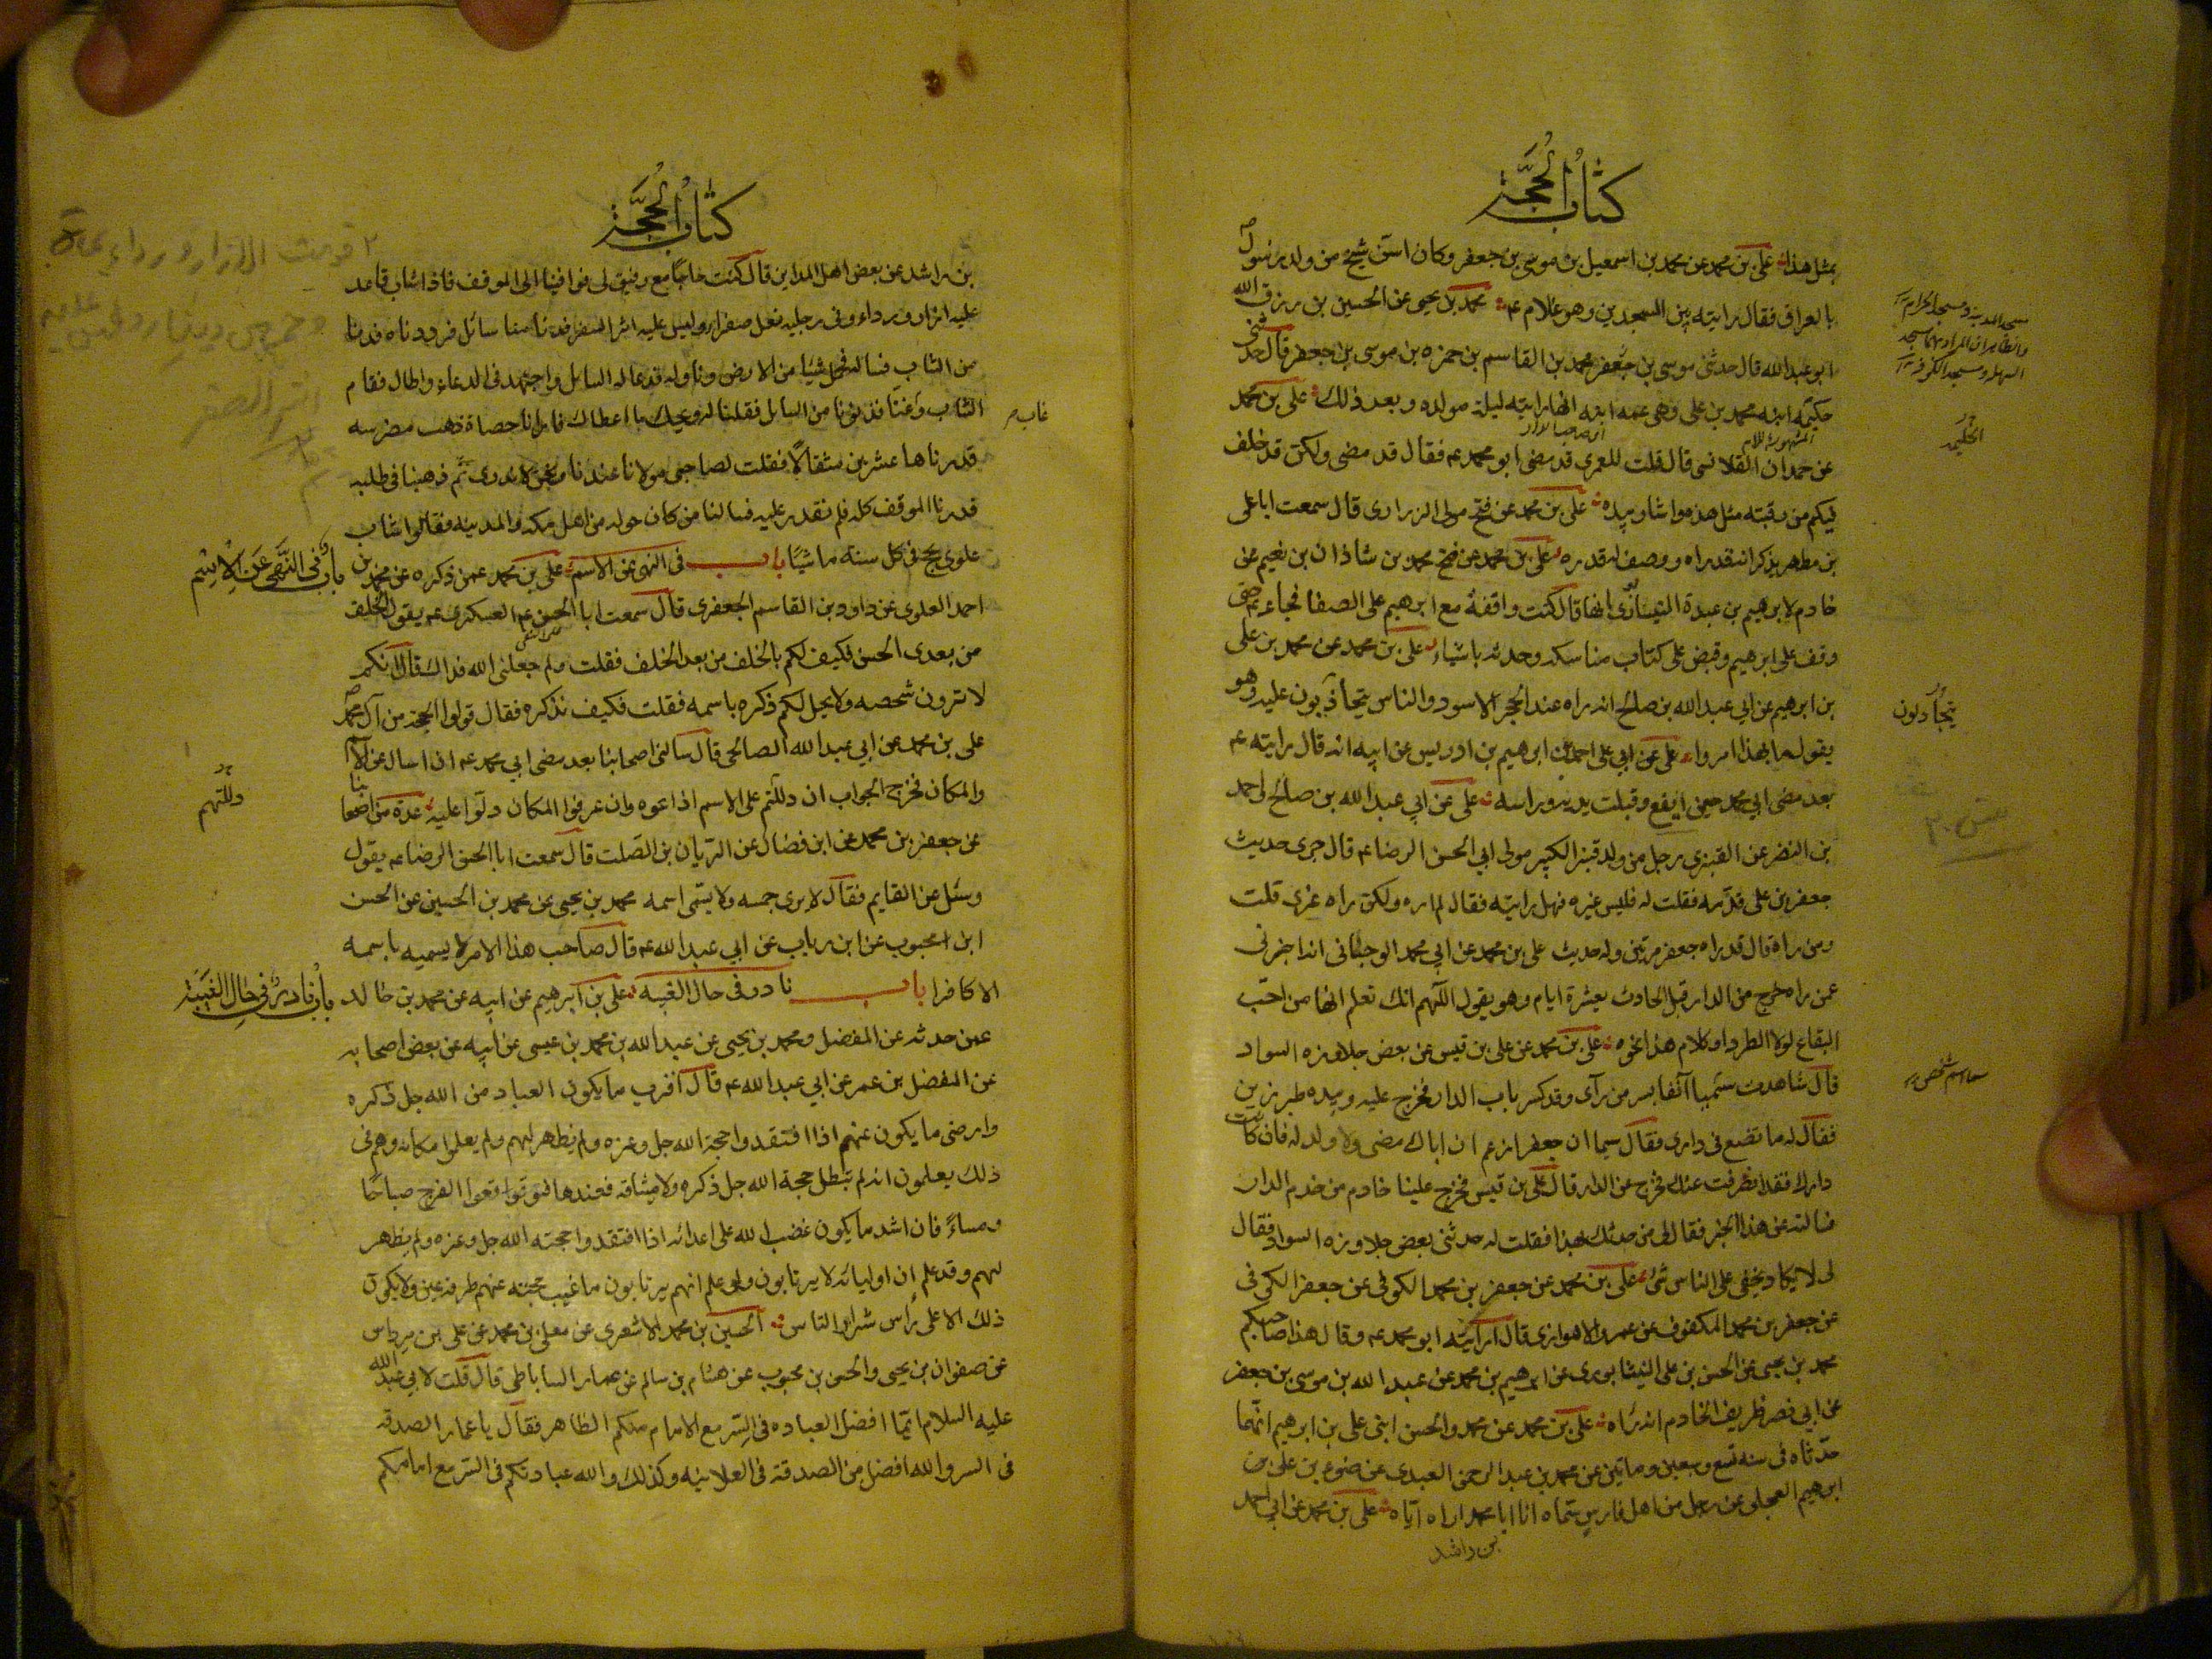 كتاب الحجة
بمثل هذا علي بن محمد عن محمد بن اسمعيل بن موسى بن جعفر وكان اسن شيخ من ولد رسول
الله بالعراق فقال رايته بين المسجدين وهو غلام ع محمد بن يحيى عن الحسين بن رزق
ابو عبد الله قال حدثنى موسى بن جعفر محمد بن القاسم بن حمزه بن موسى بن جعفر قال حدثتنى
حكيمه ابنه محمد بن على وهى عمه ابيه انها رايته ليلة مولده وبعد ذلك علي بن محمد
عن حمدان القلانسى قال قلت للعمرى قد مضى ابو محمد ع فقال قد مضى ولكن قد خلف
فيكم من رقبته مثل هذه واشار بيده علي بن محمد عن فتح مولى الزرارى قال سمعت ابا على
بن مطهر يذكر انه قد راه ووصف له قدره علي بن محمد عن فتح محمد بن شاذان بن نعيم عن
خادم لابرهيم بن عبدة النيسابورى انها قالت كنت واقفة مع ابرهيم على الصفا فجاء ع حتى
وقف على ابرهيم وقبض على كتاب مناسكه وحدثه باشياء علي بن محمد عن محمد بن على
بن ابرهيم عن ابي عبد الله بن صالح انه راه عند الحجر الاسود والناس يتجاذبون عليه وهو
يقول ما بهذا امروا علي عن ابي على احمد بن ابرهيم بن ادريس عن ابيه انه قال رايته ع
بعد مضى ابي محمد حين ايفع وقبلت يديه وراسه علي عن ابي عبد الله بن صالح واحمد
بن النضر عن القنبرى رجل من ولد قنبر الكبير مولى ابي الحسن الرضا ع قال جرى حديث
جعفر بن على فذمه فقلت له فليس غيره فهل رايته فقال لم اره ولكن راه غيرى قلت
ومن راه قال قد راه جعفر مرتين وله حديث علي بن محمد عن ابي محمد الوجنانى انه اخبرنى
عمن راه خرج من الدار قبل الحادث بعشرة ايام وهو يقول اللهم انك تعلم انها من احب
البقاع لولا الطرد او كلام هذا نحوه علي بن محمد عن على بن قيس عن بعض جلاوزه السواد
قال شاهدت سيما آنفا بسر من رآى وقد كسر باب الدار فخرج عليه وبيده طبرزين
فقال له ما تصنع فى دارى فقال سيما ان جعفرا زعم ان اباك مضى ولا ولد له فان كانت
دارك فقد انصرفت عنك فخرج عن الدار قال علي بن قيس فخرج علينا خادم من خدم الدار
فسالته عن هذا الخبر فقال لى من حدثك بهذا فقلت له حدثنى بعض جلاوزه السواد فقال
لى لا يكاد يخفى على الناس شئ علي بن محمد عن جعفر بن محمد الكوفى عن جعفر الكوفى
عن جعفر بن محمد المكفوف عن عمرو الاهوازى قال ارانيه ابو محمد ع وقال هذا صاحبكم
محمد بن يحيى عن الحسن بن على النيشابورى عن ابرهيم بن محمد عن عبد الله بن موسى بن جعفر
عن ابي نصر ظريف الخادم انه راه علي بن محمد عن محمد والحسن ابنى على بن ابرهيم انهما
حدثاه فى سنه تسع وسبعين وماتين عن محمد بن عبد الرحمن العبدى عن ضوء بن على بن
ابرهيم العجلى عن رجل من اهل فارس سماه ان ابا محمد اراه اياه علي بن محمد عن ابي احمد
بن راشد
يتجاذبون
كتاب الحجة
بن راشد عن بعض اهل المداين قال كنت حاجا مع رفيق لى فوافينا الى الموقف فاذا شاب قاعد
عليه ازار ورداء وفى رجليه نعل صفراء وليس عليه اثر السفر فدنا منا سائل فرددناه فدنا
من الشاب فساله فحمل شيئا من الارض وناوله فدعا له السائل واجتهد فى الدعاء واطال فقام
الشاب وغاب عنا فدنونا من السائل فقلنا له ويحك ما اعطاك فارانا حصاة ذهب مضرسه
قدرناها عشرين مثقالا فقلت لصاحبى مولانا عندنا ونحن لا ندرى ثم ذهبنا فى طلبه
فدرنا الموقف كله فلم نقدر عليه فسالنا من كان حوله من اهل مكه والمدينه فقالوا شاب
علوى يحج فى كل سنه ماشيا باب فى النهى عن الاسم علي بن محمد عمن ذكره عن محمد بن
احمد العلوى عن داود بن القاسم الجعفرى قال سمعت ابا الحسن العسكرى ع يقول الخلف
من بعدى الحسن فكيف لكم بالخلف من بعد الخلف فقلت ولم جعلنى الله فداك قال انكم
لا ترون شخصه ولا يحل لكم ذكره باسمه فقلت فكيف نذكره فقال قولوا الحجة من آل محمد
علي بن محمد عن ابي عبد الله الصالحى قال سالنى اصحابنا بعد مضى ابي محمد ع ان اسال عن الاسم
والمكان فخرج الجواب ان دللتم على الاسم اذاعوه وان عرفوا المكان دلوا عليه عدة من اصحابنا
عن جعفر بن محمد عن ابن فضال عن الريان بن الصلت قال سمعت ابا الحسن الرضا ع يقول
وسئل عن القايم فقال لا يرى جسمه ولا يسمى اسمه محمد بن يحيى عن محمد بن الحسين عن الحسن
ابن محبوب عن ابن رياب عن ابي عبد الله ع قال صاحب هذا الامر لا يسميه باسمه
الا كافر باب نادر فى حال الغيبه علي بن ابرهيم عن ابيه عن محمد بن خالد
عمن حدثه عن المفضل ومحمد بن يحيى عن عبد الله بن محمد بن عيسى عن ابيه عن بعض اصحابه
عن المفضل بن عمر عن ابي عبد الله ع قال اقرب ما يكون العباد من الله جل ذكره
وارضى ما يكون عنهم اذا افتقدوا حجة الله جل وعزه ولم يظهر لهم ولم يعلموا مكانه وهم فى
ذلك يعلمون انه لم تبطل حجة الله جل ذكره ولا ميثاقه فعندها فتوقعوا الفرج صباحا
ومساء فان اشد ما يكون غضب الله على اعدائه اذا افتقدوا حجته الله جل وعزه ولم يظهر
لهم وقد علم ان اوليائه لا يرتابون ولو علم انهم يرتابون ما غيب حجته عنهم طرفه عين ولا يكون
ذلك الا على رأس شرار الناس الحسين بن محمد الاشعرى عن معلى بن محمد عن على بن مرداس
عن صفوان بن يحيى والحسن بن محبوب عن هشام بن سالم عن عمار الساباطى قال قلت لابي عبد الله
عليه السلام ايما افضل العباده فى السر مع الامام منكم الظاهر فقال يا عمار الصدقه
فى السر والله افضل من الصدقة فى العلانيه وكذلك والله عبادتكم فى السر مع امامكم
غاب
باب فى النهى عن الاسم
دللتهم
باب نادر فى حال الغيبة